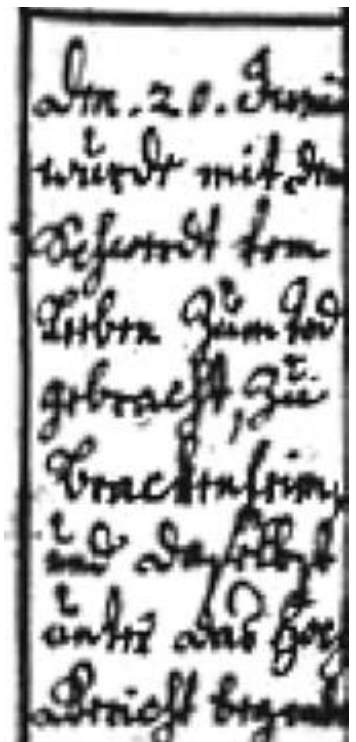 den. 20. Junii
wurde mit dem
Schwerdt vom
Leben zum tod
gebracht, zu
Brackenheim,
und daselbst
unter das Hoch
Gericht begrab